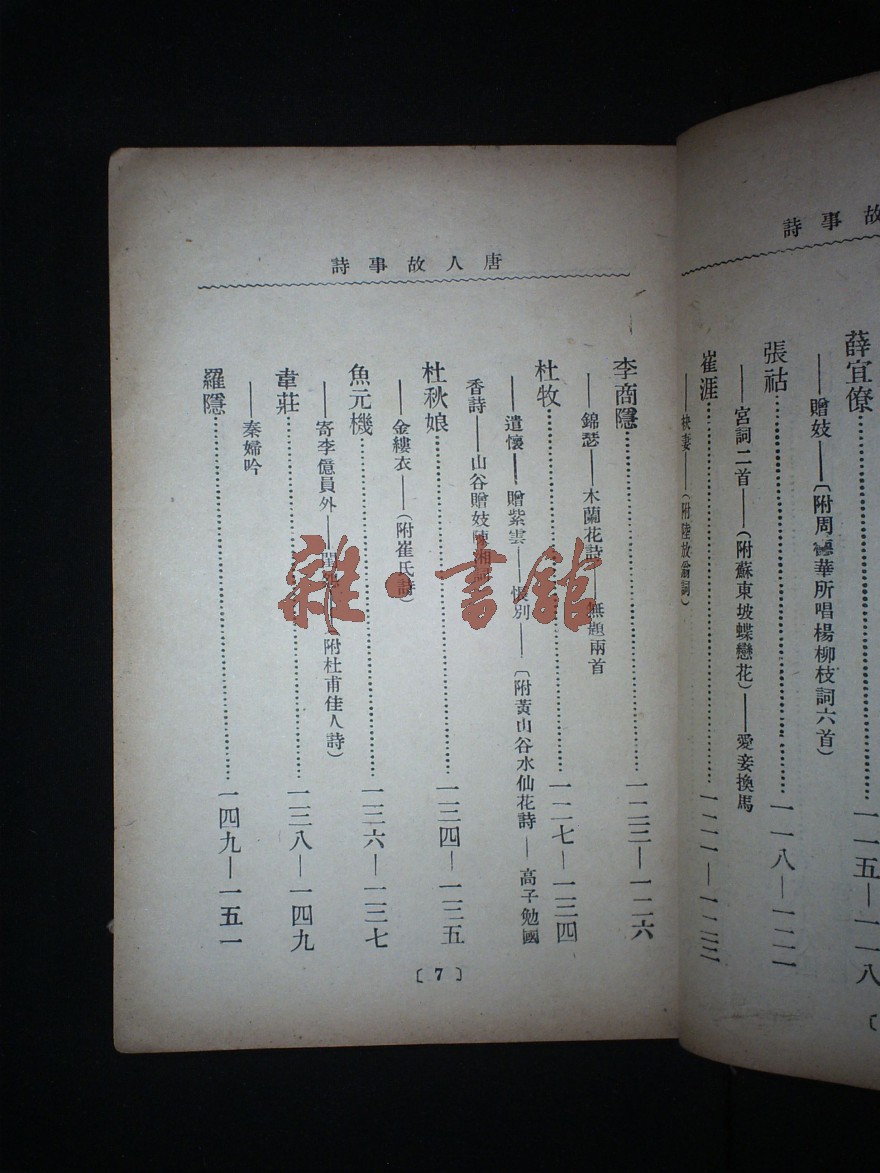 故事詩
薛宜僚……一一五—一一八
——贈妓——〔附周德華所唱楊柳枝詞六首〕
張祜……一一八—一二一
——宮詞二首——(附蘇東坡蝶戀花)——愛妾換馬
崔涯……一二一—一二三
妻——(附陸放翁詞)
唐人故事詩
李商隱……一二三—一二六
——錦瑟——木蘭花詩——無題兩首
杜牧……一二七—一三四
——遣懷——贈紫雲——恨別——〔附黃山谷水仙花詩——高子勉國
香詩——山谷贈妓陳湘詞〕
杜秋娘……一三四—一三五
——金縷衣——(附崔氏詩)
魚元機……一三六—一三七
——寄李億員外——閨(附杜甫佳人詩)
韋莊……一三八—一四九
——秦婦吟
羅隱……一四九—一五一
〔7〕
雜·書館